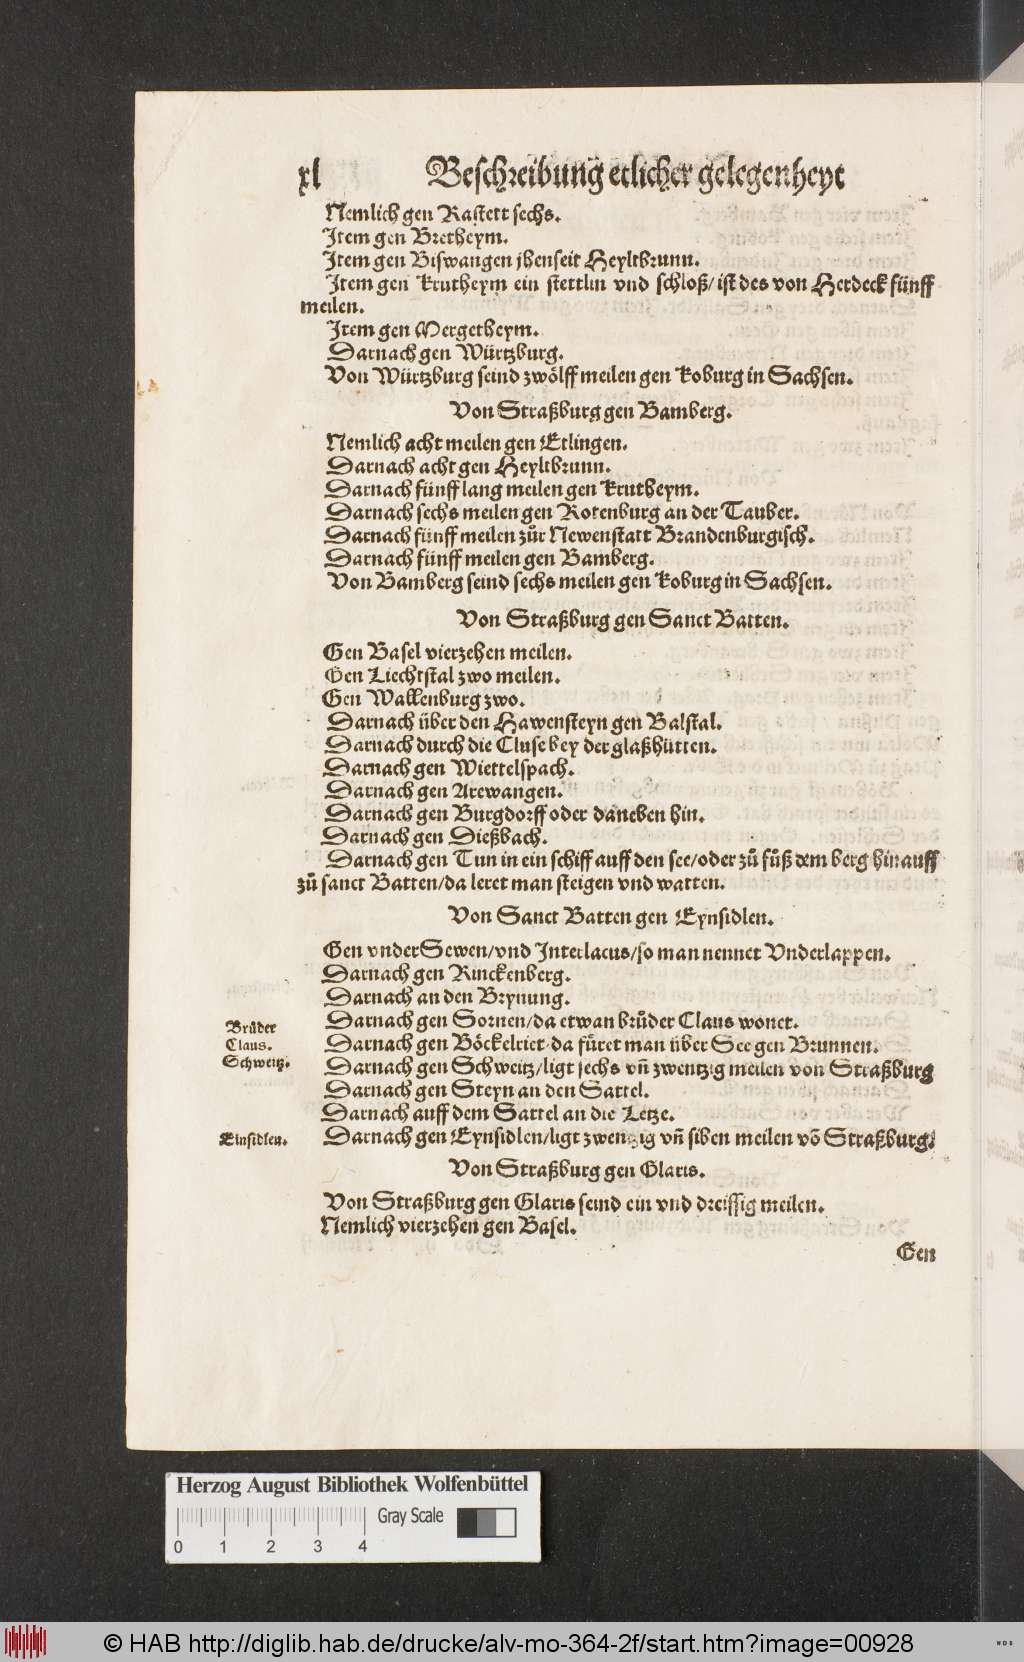 xl Beschreibung etlicher gelegenheyt
Nemlich gen Rastett sechs.
Item gen Bretheym.
Item gen Biswangen jhenseit Heyltbrunn.
Item gen Krutheym ein stettlin vnd schloß/ist des von Herdeck fünff
meilen.
Item gen Mergetheym.
Darnach gen Würtzburg.
Von Würtzburg seind zwölff meilen gen Koburg in Sachsen.
Von Straßburg gen Bamberg.
Nemlich acht meilen gen Etlingen.
Darnach acht gen Heyltbrunn.
Darnach fünff lang meilen gen Krutheym.
Darnach sechs meilen gen Rotenburg an der Tauber.
Darnach fünff meilen zůr Newenstatt Brandenburgisch.
Darnach fünff meilen gen Bamberg.
Von Bamberg seind sechs meilen gen Koburg in Sachsen.
Von Straßburg gen Sanct Batten.
Gen Basel vierzehen meilen.
Gen Liechtstal zwo meilen.
Gen Wallenburg zwo.
Darnach über den Hawensteyn gen Balstal.
Darnach durch die Cluse bey der glaßhütten.
Darnach gen Wiettelspach.
Darnach gen Arewangen.
Darnach gen Burgdorff oder daneben hin.
Darnach gen Dießbach.
Darnach gen Tun in ein schiff auff den see/oder zů fůß dem berg hinauff
zů sanct Batten/da leret man steigen vnd watten.
Von Sanct Batten gen Eynsidlen.
Gen vnderSewen/vnd Interlacus/so man nennet Vnderlappen.
Darnach gen Rinckenberg.
Darnach an den Brynung.
Brůder
Darnach gen Sornen/da etwan brůder Claus wonet.
Claus.
Darnach gen Böckelriet da fůret man über See gen Brunnen.
Schweitz.
Darnach gen Schweitz/ligt sechs vñ zwentzig meilen von Straßburg
Darnach gen Steyn an den Sattel.
Darnach auff dem Sattel an die Letze.
Einsidlen.
Darnach gen Eynsidlen/ligt zwentzig vñ siben meilen võ Straßburg.
Von Straßburg gen Glaris.
Von Straßburg gen Glaris seind ein vnd dreissig meilen.
Nemlich vierzehen gen Basel.
Gen
Herzog August Bibliothek Wolfenbüttel
Gray Scale
0 1 2 3 4
© HAB http://diglib.hab.de/drucke/alv-mo-364-2f/start.htm?image=00928